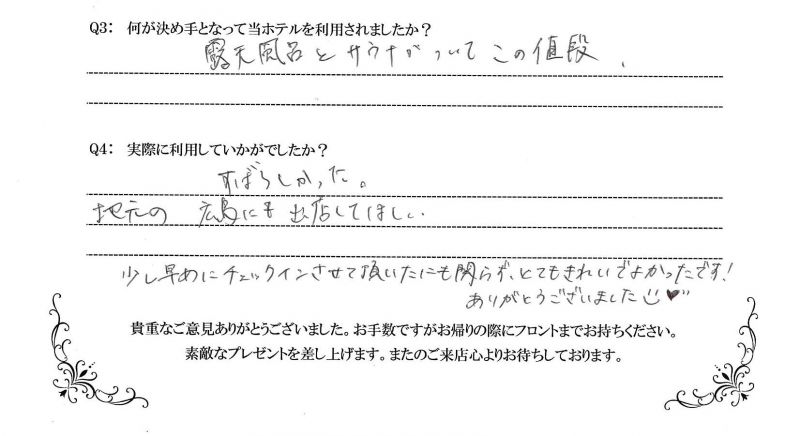 Q3: 何が決め手となって当ホテルを利用されましたか?
露天風呂とサウナがついてこの値段.
Q4: 実際に利用していかがでしたか?
すばらしかった。
地元の 広島にも出店してほしい.
少し早めにチェックインさせて頂いたにも関らず、とてもきれいでよかったです!
ありがとうございました
貴重なご意見ありがとうございました。お手数ですがお帰りの際にフロントまでお持ちください。
素敵なプレゼントを差し上げます。またのご来店心よりお待ちしております。